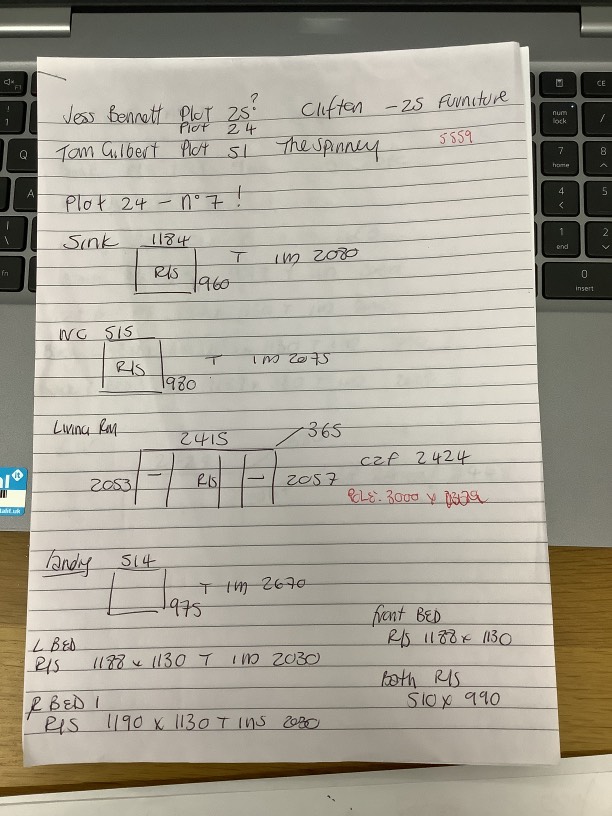 Jess Bennett Plot 25? Clifton - 25 Furniture
Plot 24
Tom Gilbert Plot 51 The Spinney 5559
Plot 24 - n° 7!
Sink 1184
R/S 960 T 1m 2080
WC 515
R/S 980 T 1m 2075
Living Rm 2415 365
2053 - R/S - 2057 c2f 2424
3000 x
Landy 514
975 T 1m 2670
front BED
R/S 1188 x 1130
L BED
R/S 1188 x 1130 T 1m 2030
both R/S
510 x 990
R BED 1
R/S 1190 x 1130 T ins 2080
num lock
7 home
8
4
5
1 end
2
0 insert
CE
Q
A
fn